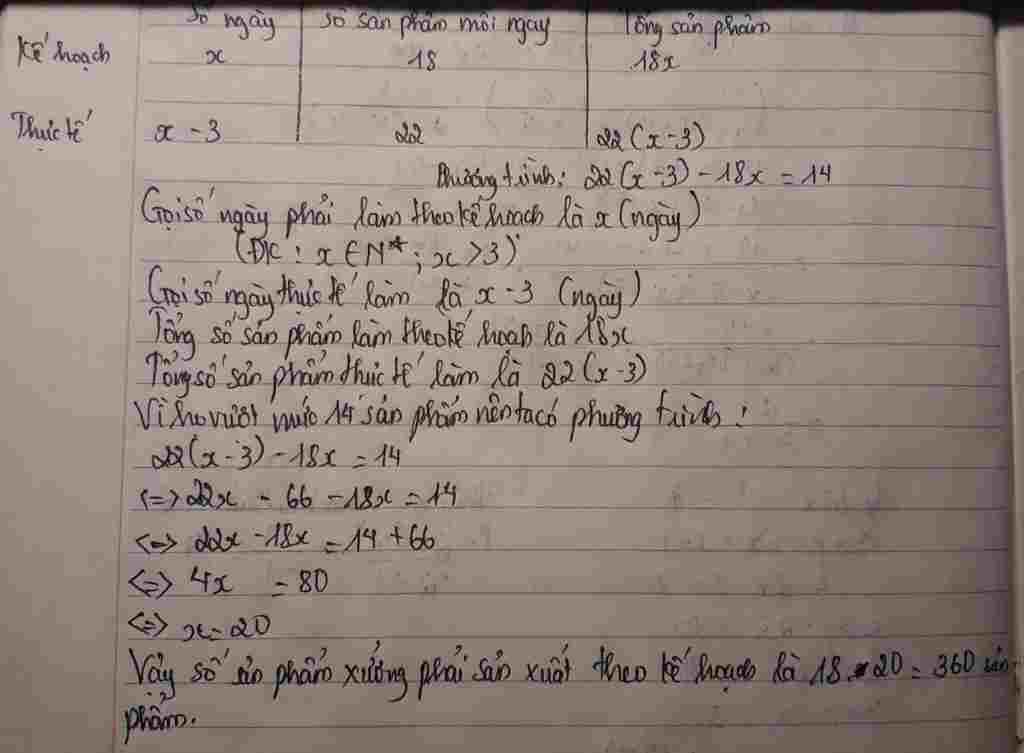 Số ngày số sản phẩm mỗi ngày Tổng sản phẩm
Kế hoạch x 18 18x
Thực tế x - 3 22 22(x-3)
Phương trình: 22(x-3)-18x = 14
Gọi số ngày phải làm theo kế hoạch là x (ngày)
(ĐK : x ∈ N* ; x > 3)
Gọi số ngày thực tế làm là x-3 (ngày)
Tổng số sản phẩm làm theo kế hoạch là 18x
Tổng số sản phẩm thực tế làm là 22(x-3)
Vì họ vượt mức 14 sản phẩm nên ta có phương trình :
22(x-3)-18x = 14
<=> 22x - 66 - 18x = 14
<=> 22x - 18x = 14 + 66
<=> 4x = 80
<=> x = 20
Vậy số sản phẩm xưởng phải sản xuất theo kế hoạch là 18 . 20 = 360 sản
phẩm.